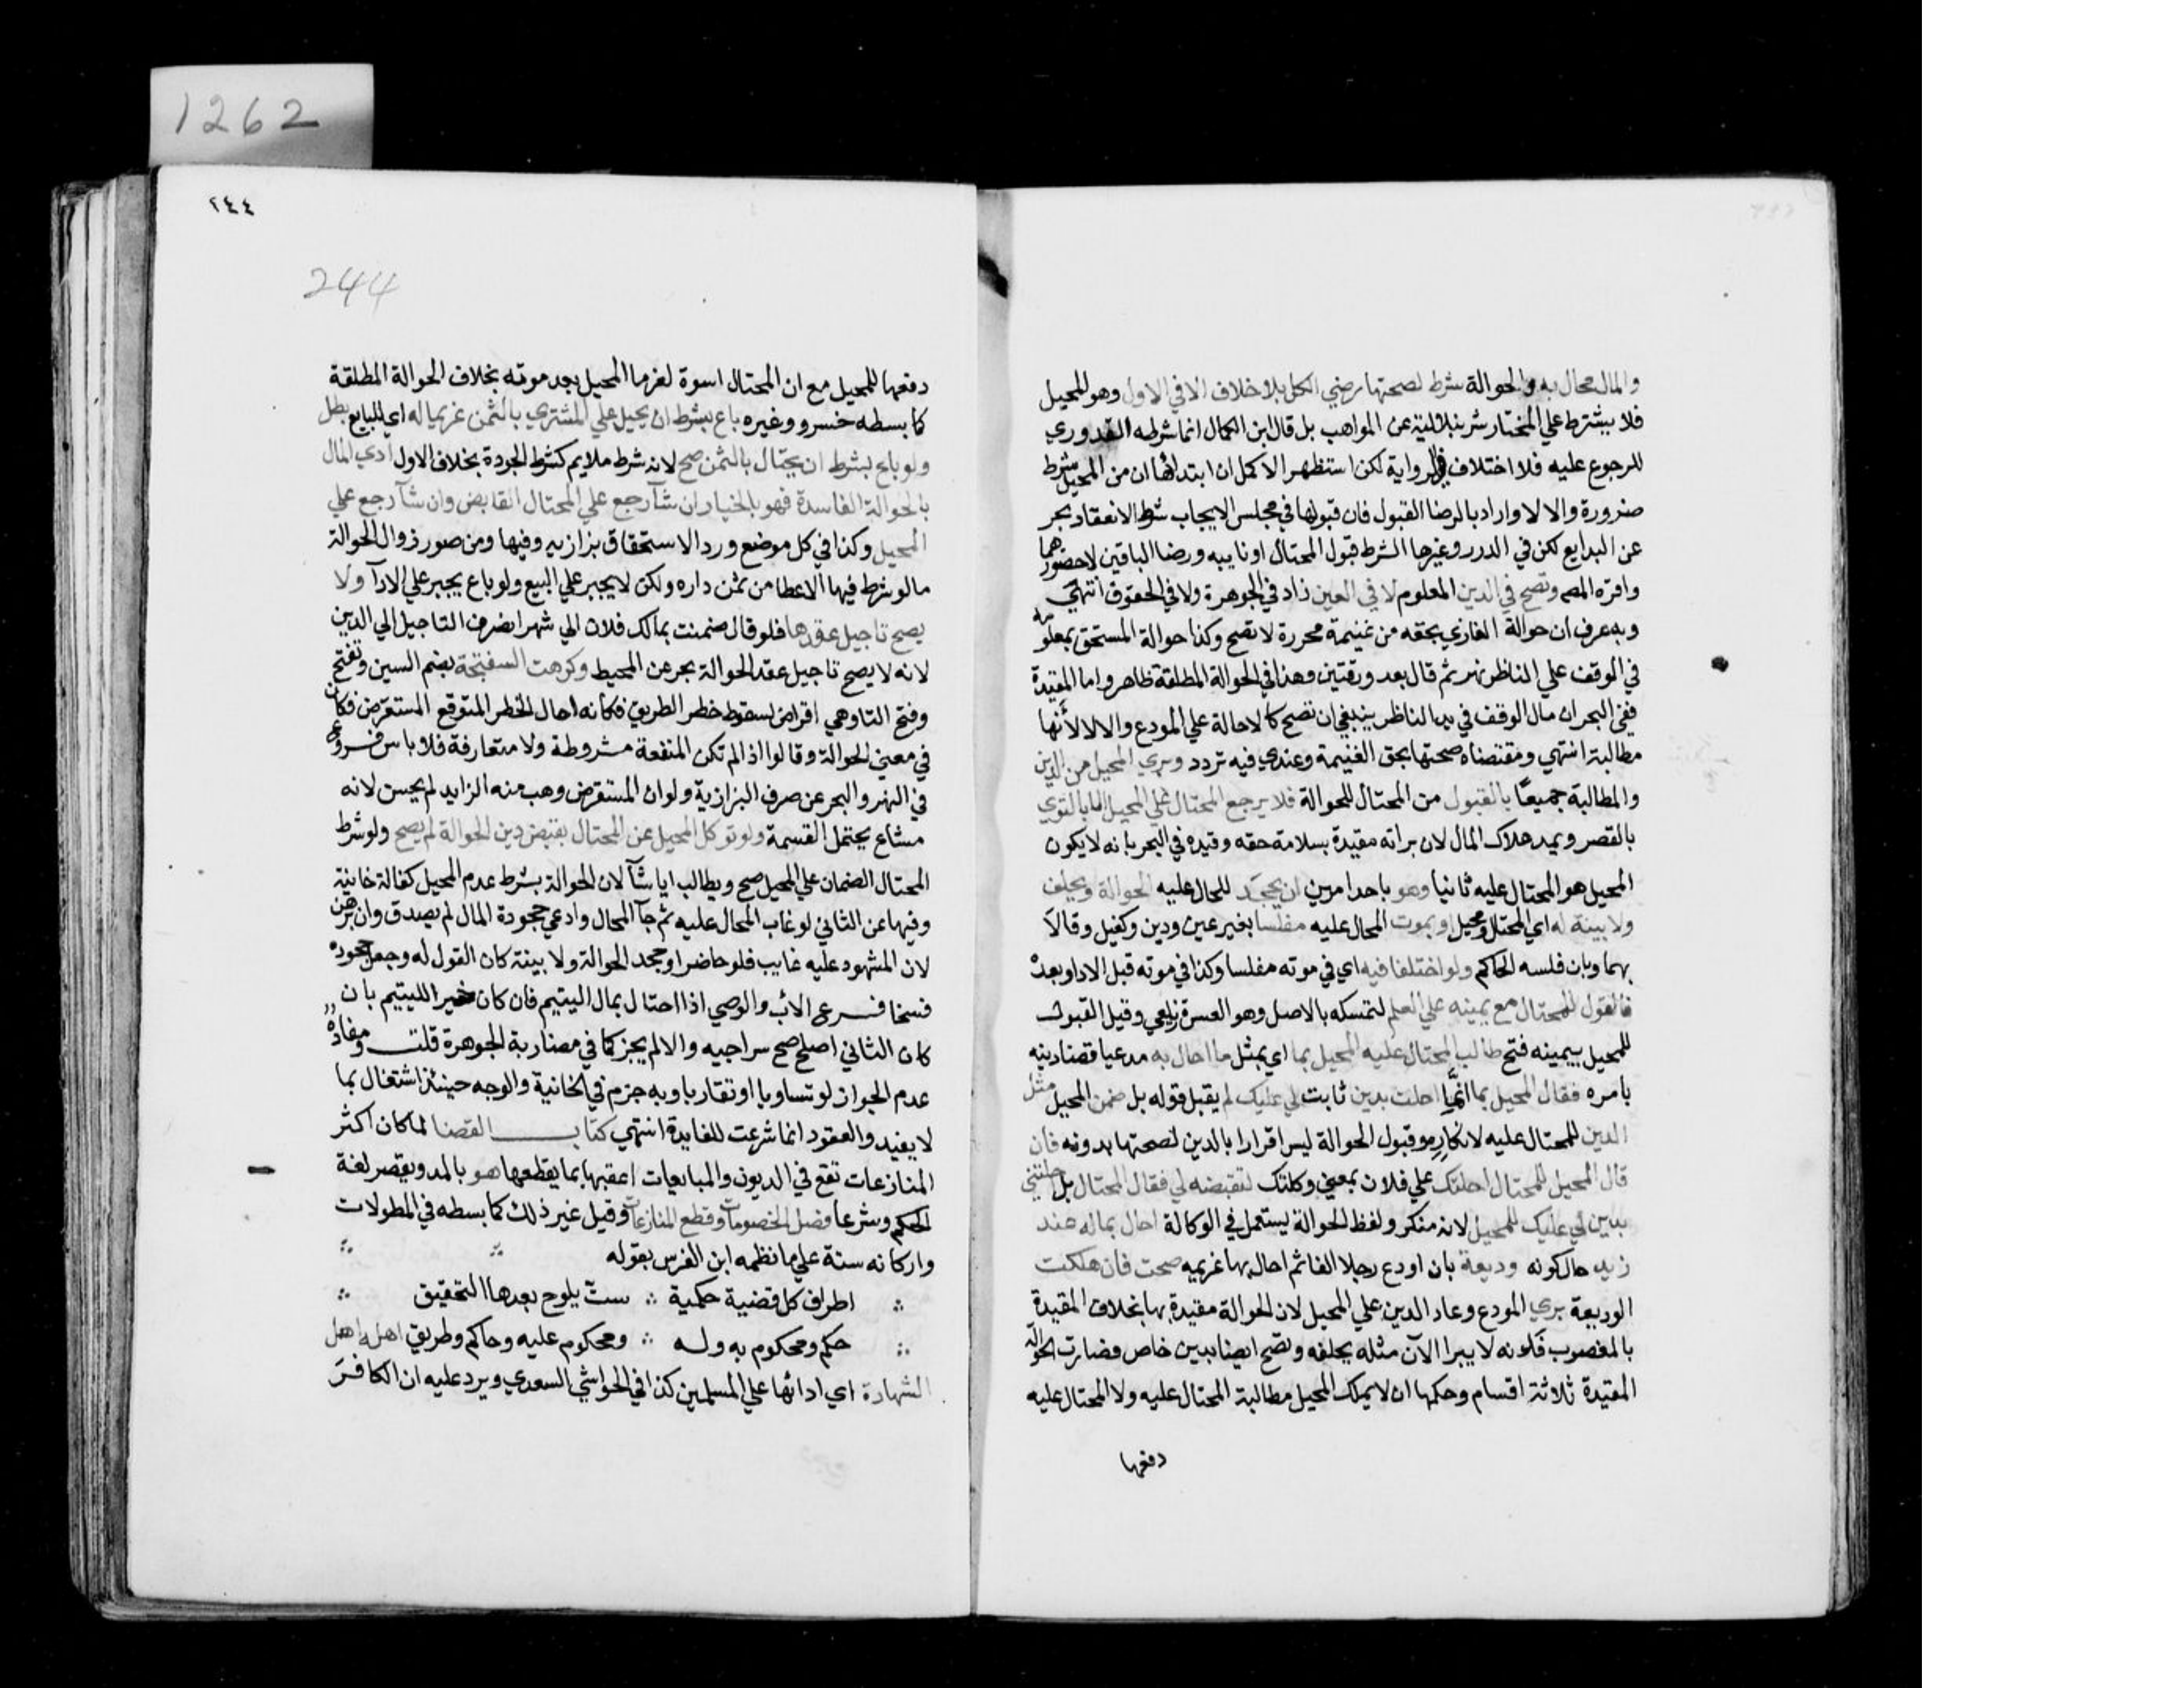 والمال محال به والحوالة شرط لصحتها رضي الكل بلا خلاف الا في الاول وهو المحيل
فلا يشترط علي المختار شرنبلالية عن المواهب بل قال ابن الكمال انما شرطه القدوري
للرجوع عليه فلا اختلاف في الرواية لكن استظهر الاكمل ان ابتداها ان من المحيل شرط
ضرورة والا لا واراد بالرضا القبول فان قبولها في مجلس الايجاب شرط الانعقاد بحر
عن البدايع لكن في الدرر وغيرها الشرط قبول المحتال او نايبه ورضا الباقين لا حضورهما
واقره المص وتصح في الدين المعلوم لا في العين زاد في الجوهرة ولا في الحقوق انتهي
وبه عرف ان حوالة الغازي بحقه من غنيمة محررة لا تصح وكذا حوالة المستحق بمعلومه
في الوقف علي الناظر نهر ثم قال بعد ورقتين وهذا في الحوالة المطلقة ظاهر واما المقيدة
ففي البحر ان مال الوقف في يد الناظر ينبغي ان تصح كالاحالة علي المودع والا لا لأنها
مطالبة انتهي ومقتضاه صحتها بحق الغنيمة وعندي فيه تردد وبري المحيل من الدين
والمطالبة جميعًا بالقبول من المحتال للحوالة فلا يرجع المحتال علي المحيل الا بالتوي
بالقصر ويمد هلاك المال لان براته مقيدة بسلامة حقه وقيده في البحر بانه لا يكون
المحيل هو المحتال عليه ثانيا وهو باحد امرين ان يجحد للحال عليه الحوالة ويحلف
ولا بينة له اي المحتال ومحيل او يموت المحال عليه مفلسا بغير عين ودين وكفيل وقالا
بهما وبان فلسه الحاكم ولو اختلفا فيه اي في موته مفلسا وكذا في موته قبل الادا وبعده
فالقول للمحتال مع يمينه علي العلم لتمسكه بالاصل وهو العسرة زيلعي وقيل القول
للمحيل بيمينه فتح طالب المحتال عليه المحيل بما اي بمثل ما احال به مدعيا قضا دينه
بامره فقال المحيل بما انما احلت بدين ثابت لي عليك لم يقبل قوله بل ضمن المحيل مثل
الدين للمحتال عليه لانكاره وقبول الحوالة ليس اقرارا بالدين لصحتها بدونه فان
قال المحيل للمحتال احلتك علي فلان بمعني وكلتك لتقبضه لي فقال المحتال بل احلتني
بدين لي عليك للمحيل لانه منكر ولفظ الحوالة يستعمل في الوكالة احال بماله عند
زيد حال كونه وديعة بان اودع رجلا الفا ثم احال بها غريمه صحت فان هلكت
الوديعة بري المودع وعاد الدين علي المحيل لان الحوالة مقيدة بها بخلاف المقيدة
بالمغصوب فلانه لا يبرا الآن مثله يخلفه وتصح ايضا بدين خاص فصارت الحوالة
المقيدة ثلاثة اقسام وحكمها ان لا يملك المحيل مطالبة المحتال عليه ولا المحتال عليه
دفعها
1262
٢٤٤
244
دفعها للمحيل مع ان المحتال اسوة لغرما المحيل بعد موته بخلاف الحوالة المطلقة
كما بسطه خسرو وغيره باع بشرط ان يحيل علي المشتري بالثمن غريما له اي للبايع بطل
ولو باع بشرط ان يحتال بالثمن صح لانه شرط ملايم كشرط الجودة بخلاف الاول ادي المال
بالحوالة الفاسدة فهو بالخيار ان شآ رجع علي المحتال القابض وان شآ رجع علي
المحيل وكذا في كل موضع ورد الاستحقاق بزازيه وفيها ومن صور زوال الحوالة
ما لو شرط فيها الاعطا من ثمن داره ولكن لا يجبر علي البيع ولو باع يجبر علي الادآ ولا
يصح تاجيل عقدها فلو قال ضمنت بمالك فلان الي شهر انصرف التاجيل الي الدين
لانه لا يصح تاجيل عقد الحوالة بحر عن المحيط وكرهت السفتجة بضم السين وتفتح
وفتح التا وهي اقراض لسقوط خطر الطريق فكانه احال الخطر المتوقع المستقرض فكان
في معني الحوالة وقالوا اذا لم تكن المنفعة مشروطة ولا متعارفة فلا باس فــروع
في النهر والبحر عن صرف البزازية ولو ان المستقرض وهب منه الزايد لم يحسن لانه
مشاع يحتمل القسمة ولو توكل المحيل عن المحتال بقبض دين الحوالة لم يصح ولو شرط
المحتال الضمان علي المحيل صح ويطالب ايا شآ لان الحوالة بشرط عدم المحيل كفالة خانية
وفيها عن الثاني لو غاب المحال عليه ثم جآ المحال وادعي جحودة المال لم يصدق وان برهن
لان المشهود عليه غايب فلو حاضرا وجحد الحوالة ولا بينة كان القول له وجعل جحوده
فسخا فــرع الأب والوصي اذا احتال بمال اليتيم فان كان خيرا لليتيم بان
كان الثاني اصلح صح سراجيه والا لم يجز كما في مضاربة الجوهرة قلت ومفاده
عدم الجواز لو تساويا او تقاربا وبه جزم في الخانية والوجه حينئذ اشتغال بما
لا يفيد والعقود انما شرعت للفايدة انتهي كتاب القضا لما كان اكثر
المنازعات تقع في الديون والمبايعات اعقبها بما يقطعها هو بالمد ويقصر لغة
الحكم وشرعا فصل الخصومات وقطع المنازعات وقيل غير ذلك كما بسطه في المطولات
واركانه ستة علي ما نظمه ابن الغرس بقوله
اطراف كل قضية حكمية ∴ ست يلوح بعدها التحقيق
حكم ومحكوم به وله ∴ ومحكوم عليه وحاكم وطريق اهله اهل
الشهادة اي ادائها علي المسلمين كذا في الحواشي السعدي ويرد عليه ان الكافر